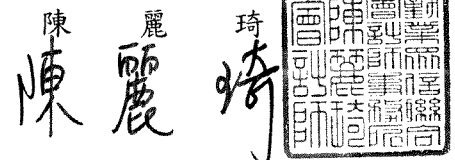 陳麗琦
陳麗琦
勤業眾信聯合
會計師事務所
陳麗琦
會計師